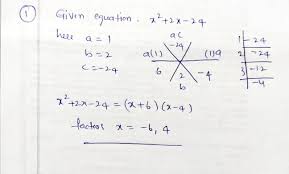 ① Given equation : x²+2x-24
here a = 1
b = 2
c = -24
ac
-24
a(1) (1)a
6 -4
2
b
1 -24
2 -24
3 -12
-4
x²+2x-24 = (x+6)(x-4)
factors x = -6, 4